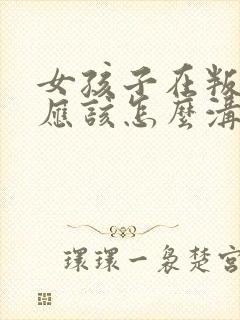 女孩子在叛
應該怎麼溝
環環一裊楚宮